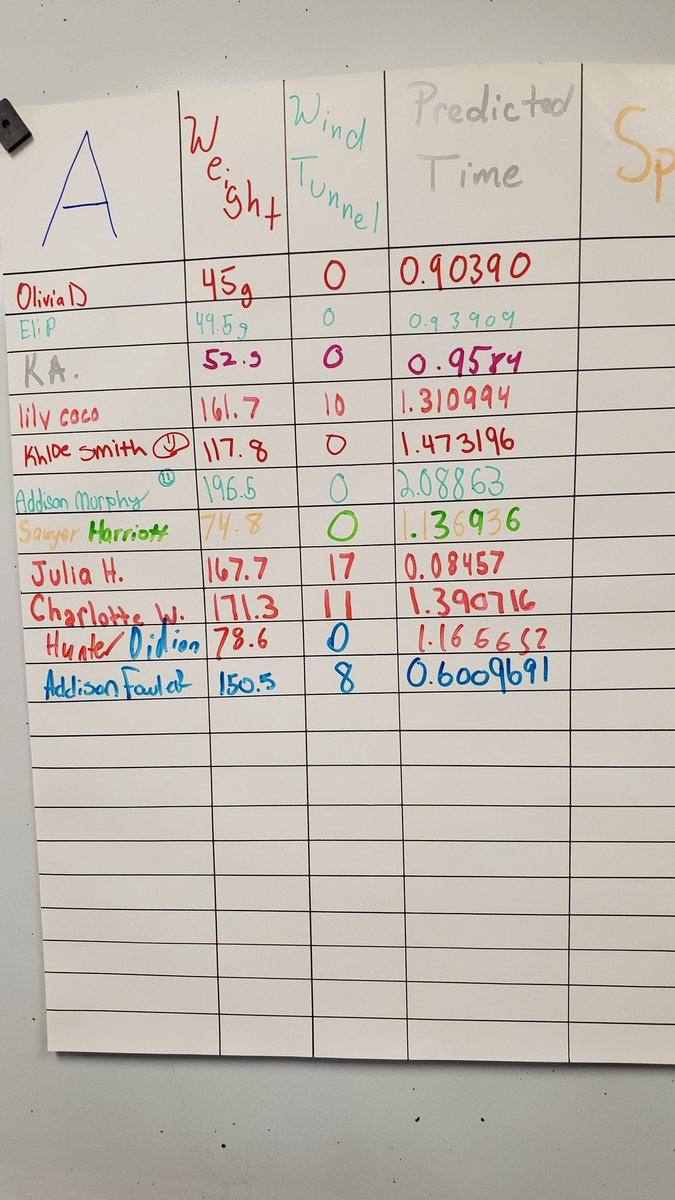 A Weight Wind Tunnel Predicted Time Sp
Olivia D 45g 0 0.90390
Eli P 49.5g 0 0.93909
KA. 52.9 0 0.9584
lily coco 161.7 10 1.310994
Khloe Smith 117.8 0 1.473196
Addison Murphy 196.5 0 2.08863
Sawyer Harriott 74.8 0 1.136936
Julia H. 167.7 17 0.08457
Charlotte W. 171.3 11 1.390716
Hunter Didion 78.6 0 1.166652
Addison 150.5 8 0.6009691